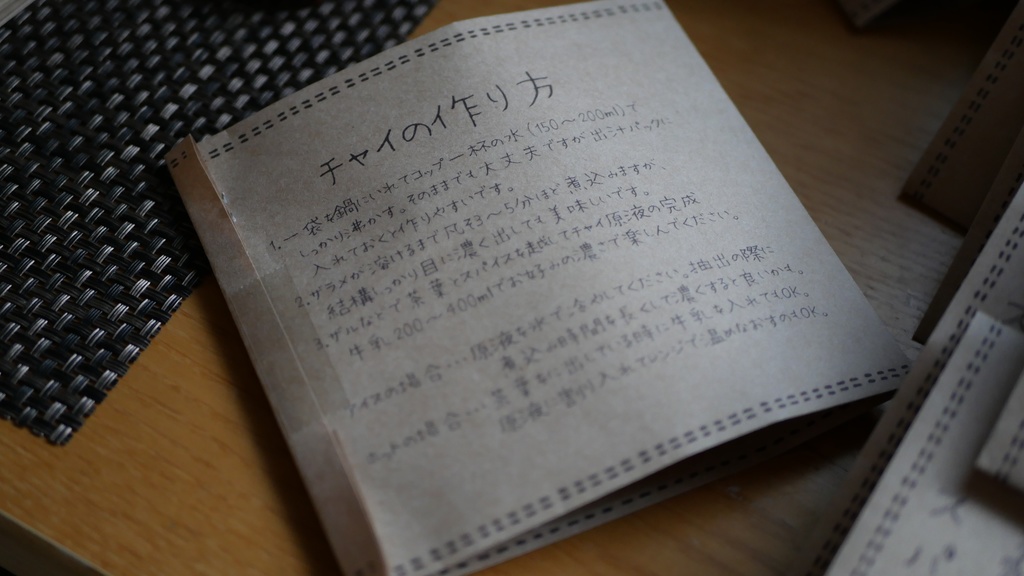 チャイの作り方
1. 一袋を鍋にいれてコップ一杯の水(150〜200ml)で
しっかり沸かす。そのままでも大丈夫ですが出汁パックに
入れておくと作りやすいです。
2. ザラメが溶けるまで凡そ3〜5分ほど煮込みますが、
結構しっかり目に濃く出しても美味しいです。
3. ザルなどで茶葉とスパイスを濾してチャイ原液の完成
牛乳200〜400mlでお好みの濃さで楽しんでください。
アイスの場合… 原液を氷で合わせてください。抽出の際に
煮込み時間を長くして濃くすると良いかも。
ホットの場合… 茶葉を煮出している時に牛乳を入れてもOK。
原液に割り入れてレンジで温めなおすのもOK。